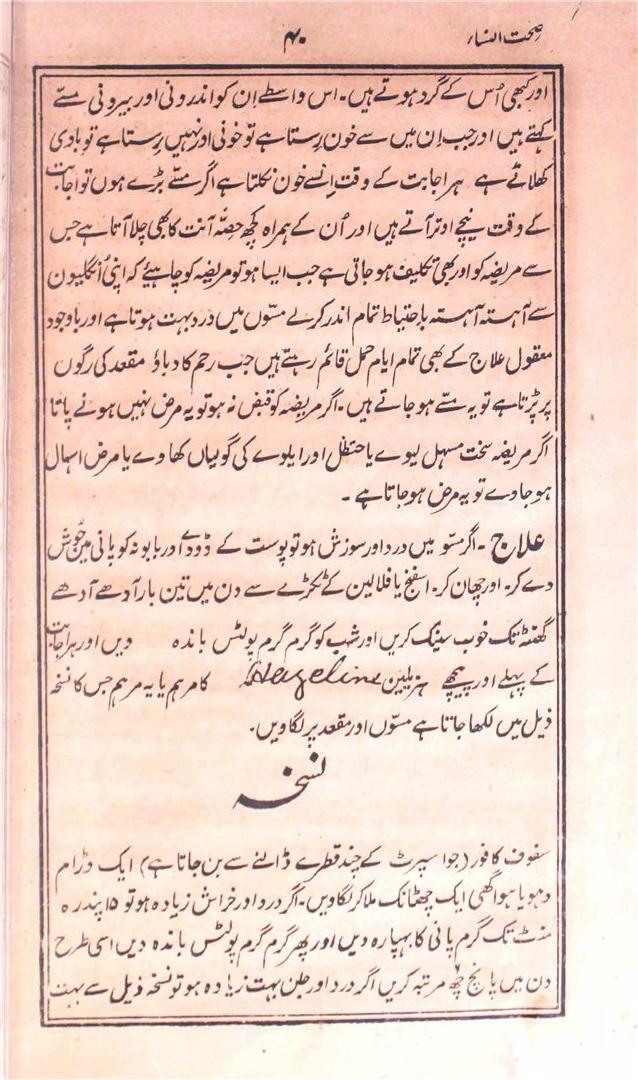 صحت النساء
۴۰
اور کبھی اُس کے گرد ہوتے ہیں۔ اس واسطے اِن کو اندرونی اور بیرونی مسّے
کہتے ہیں اور جب اِن میں سے خون رِستا ہے تو خونی اور نہیں رِستا ہے تو بادی
کھلاتے ہے ہر اجابت کے وقت اِنسے خون نکلتا ہے اگر مسّے بڑے ہوں تو اجابت
کے وقت نیچے اوتر آتے ہیں اور اُن کے ہمراہ کچھ حصّہ آنت کا بھی چلا آتا ہے جس
سے مریضہ کو اور بھی تکلیف ہو جاتی ہے جب ایسا ہو تو مریضہ کو چاہیئے کہ اپنی اُنگلیون
سے آہستہ آہستہ باحتیاط تمام اندر کرلے مسّوں میں درد بہت ہوتا ہے اور باوجود
معقول علاج کے بھی تمام ایام حمل قائم رہتے ہیں جب رحم کا دباؤ مقعد کی رگوں
پر پڑتا ہے تو یہ مسّے ہو جاتے ہیں۔ اگر مریضہ کو قبض نہ ہو تو یہ مرض نہیں ہونے پاتا
اگر مریضہ سخت مسہل لیوے یا حنظل اور ایلوے کی گولیاں کھاوے یا مرض اسہال
ہو جاوے تو یہ مرض ہو جاتا ہے ۔
علاج ۔ اگر مسّو میں درد اور سوزش ہو تو پوست کے ڈوڈے اور بابونہ کو پانی مین جُوش
دے کر۔ اور چھان کر۔ اسفنج یا فلالین کے ٹکڑے سے دن میں تین بار آدھے آدھے
گھنٹہ تک خوب سینک کریں اور شب کو گرم گرم پولٹس باندہ دیں اور ہر اجابت
کے پہلے اور پیچھے ہزیلین Hazeline کا مرہم یا یہ مرہم جس کا نسخہ
ذیل میں لکھا جاتا ہے مسّوں اور مقعد پر لگاویں۔
نسخہ
سفوف کافور (جو اسپرٹ کے چند قطرے ڈالنے سے بن جاتا ہے) ایک ڈرام
دہویا ہوا گھی ایک چھٹانک ملا کر لگاویں۔ اگر درد اور خراش زیادہ ہو تو ۱۵ پندرہ
منٹ تک گرم پانی کا بہپارہ دیں اور پھر گرم گرم پولٹس باندہ دیں اسی طرح
دن میں پانچ چھ مرتبہ کریں اگر درد اور جلن بہت زیادہ ہو تو نسخہ ذیل سے بہت